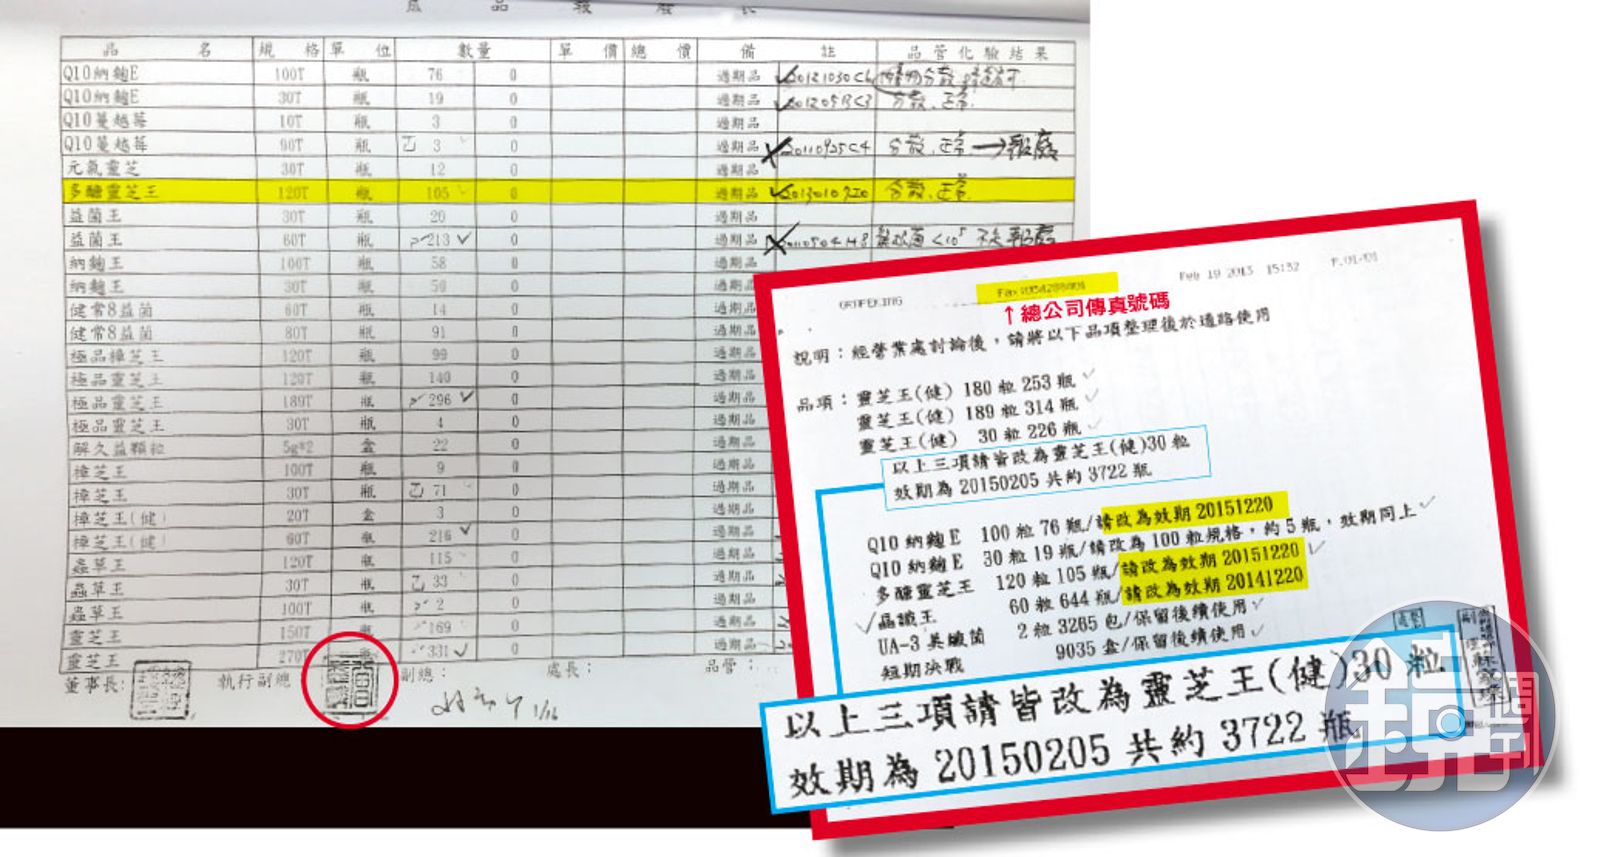 成品報廢表
品名 規格 單位 數量 單價 總價 備註 品管化驗結果
Q10納麴E 100T 瓶 76 0 過期品 ✓20121030C6
Q10納麴E 30T 瓶 19 0 過期品 分散、正常
Q10蔓越莓 10T 瓶 3 0 過期品
Q10蔓越莓 90T 瓶 3 0 過期品 ✗20110925C4 分散、正常→報廢
元氣靈芝 30T 瓶 12 0 過期品
多醣靈芝王 120T 瓶 105 0 過期品 分散、正常
益菌王 30T 瓶 20 0 過期品
益菌王 60T 瓶 213 ✓ 0 過期品 ✗20110504H8
納麴王 100T 瓶 58 0 過期品
納麴王 30T 瓶 50 0 過期品
健常8益菌 60T 瓶 14 0 過期品
健常8益菌 80T 瓶 91 0 過期品
極品樟芝王 120T 瓶 99 0 過期品
極品靈芝王 120T 瓶 140 0 過期品
極品靈芝王 189T 瓶 296 ✓ 0 過期品
極品靈芝王 30T 瓶 4 0 過期品
解久益顆粒 5g*2 盒 22 0 過期品
樟芝王 100T 瓶 9 0 過期品
樟芝王 30T 瓶 71 0 過期品
樟芝王(健) 20T 盒 3 0 過期品
樟芝王(健) 60T 瓶 216 ✓ 0 過期品
蟲草王 120T 瓶 115 0 過期品
蟲草王 30T 瓶 33 0 過期品
蟲草王 100T 瓶 2 0 過期品
靈芝王 150T 瓶 169 0 過期品
靈芝王 270T 瓶 331 ✓ 0 過期品
董事長: 執行副總: 副總: 處長: 品管:
1/16
GRAPEKING Feb 19 2013 15:32 P.01/01
↑總公司傳真號碼
說明:經營業處討論後,請將以下品項整理後於通路使用
品項:靈芝王(健) 180粒 253瓶 ✓
靈芝王(健) 189粒 314瓶 ✓
靈芝王(健) 30粒 226瓶 ✓
以上三項請皆改為靈芝王(健)30粒
效期為 20150205 共約 3722 瓶
Q10納麴E 100粒 76瓶/請改為效期 20151220
Q10納麴E 30粒 19瓶/請改為100粒規格,約5瓶,效期同上 ✓
多醣靈芝王 120粒 105瓶/請改為效期 20151220 ✓
✓晶識王 60粒 644瓶/請改為效期 20141220
UA-3 美纖菌 2粒 3265包/保留後續使用 ✓
短期決戰 9035盒/保留後續使用 ✓
以上三項請皆改為靈芝王(健)30粒
效期為 20150205 共約 3722 瓶
鏡週刊